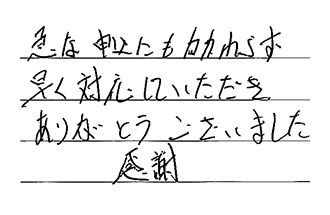 急な申込にもかかわらず
早く対応していただき
ありがとうございました
感謝